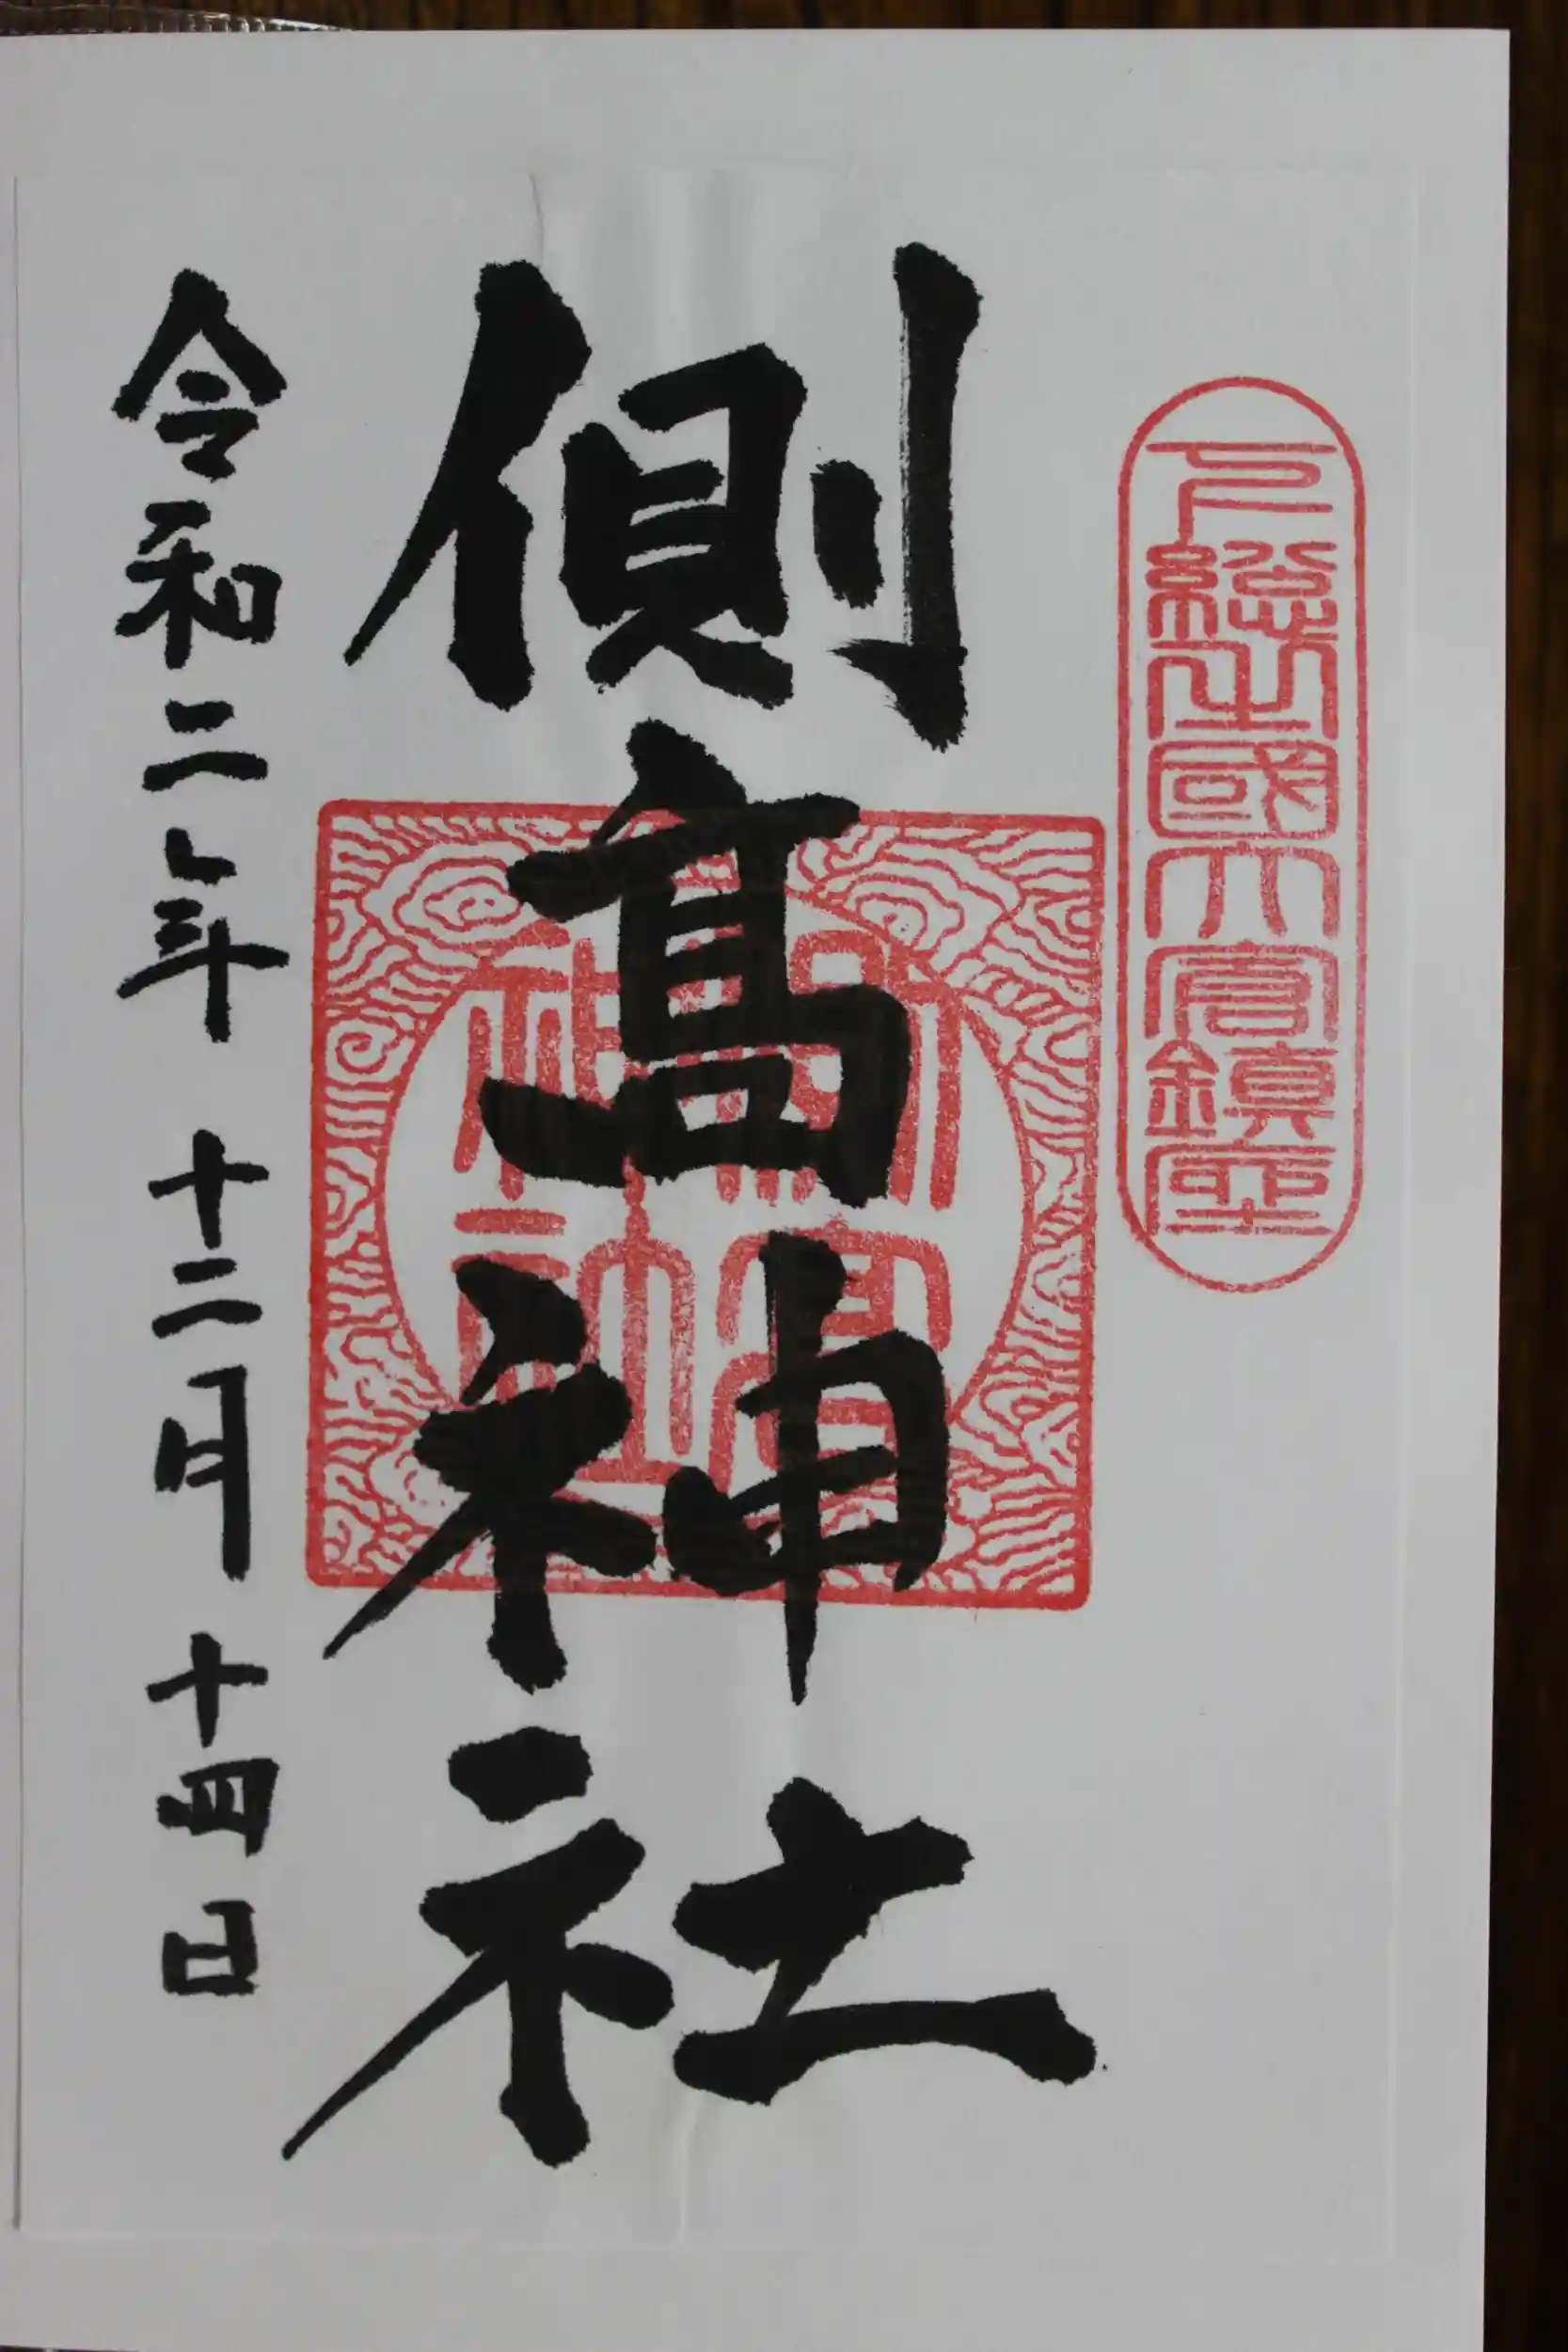 下總之國大倉鎮座
側髙神社
側高
神社
令和二年 十二月 十四日